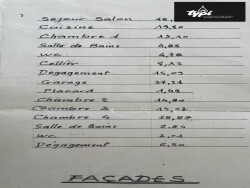 TYPI
Sejour Salon
Cuisine 19,90
Chambre 1 13,10
Salle de Bains 4,85
WC
Cellier
Degagement 15,09
Garage
Placard 1,49
Chambre 2 14,80
Chambre 3
Chambre 4
Salle de Bains 7,84
WC 2,01
Degagement 6,30
FACADES